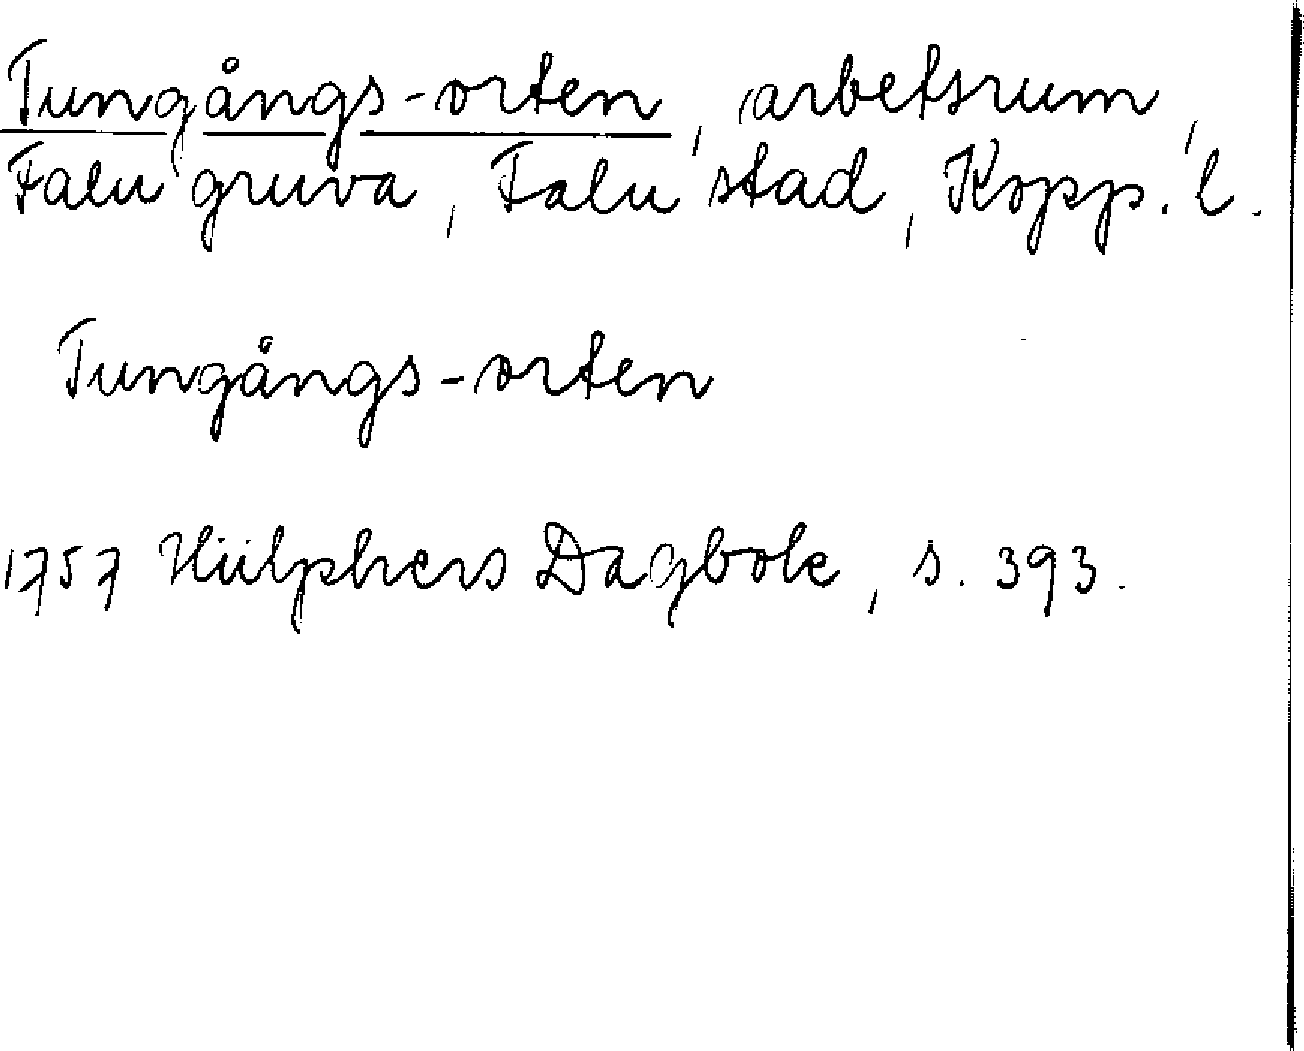 Tungångs-orten, arbetsrum,
Falu gruva, Falu stad, Kopp. l.
Tungångs-orten
1757 Hülphers Dagbok, s. 393.